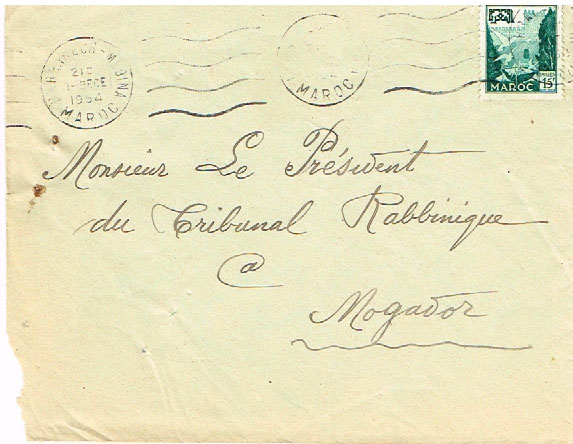 MARRAKECH-MEDINA
21
1954
MAROC
MAROC
MAROC
15
Monsieur Le Président
du Tribunal Rabbinique
@
Mogador